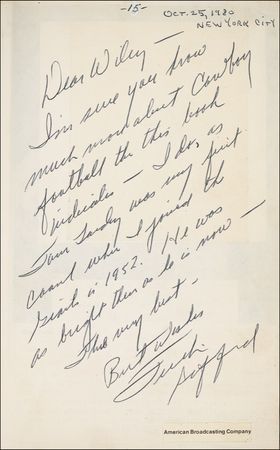 -15-
OCT. 25, 1980
NEW YORK CITY
Dear Wiley —
I'm sure you know
much more about Cowboy
football than this book
indicates — I do, as
Tom Landry was my first
coach when I joined the
Giants in 1952. He was
as bright then as he is now —
The very best —
Best Wishes
Frank
Gifford
American Broadcasting Company